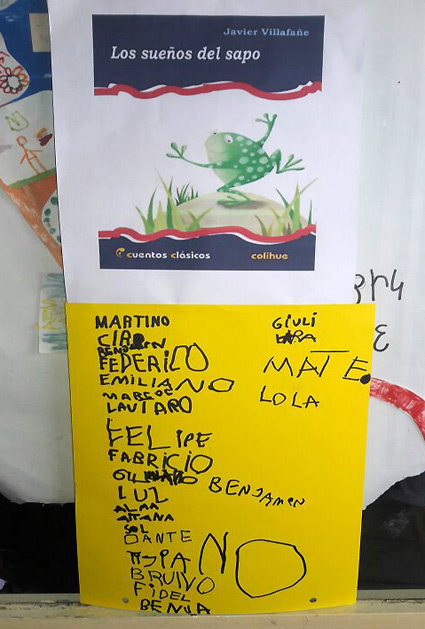 Javier Villafañe
Los sueños del sapo
cuentos clásicos
colihue
MARTINO
CIRO
BENJAMEN
FEDERICO
EMILIANO
MARCOS
LAUTARO
L
FELIPE
FABRICIO
LUZ
ALMA
AITANA
SOL
DANTE
NO
BRUNO
FIDEL
BENUA
GIULI
MATE
LOLA
BENJAMEN